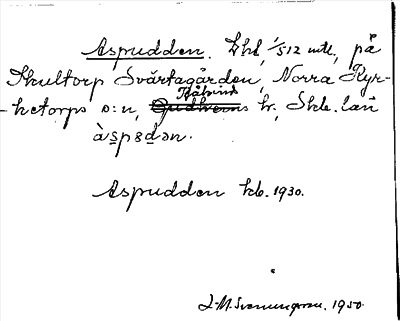 Aspudden. Lht, 1/512 mtl, på
Skultorp Svärtagården, Norra Kyr-
-ketorps s:n, Kåkinds hr, Skbl. län
àspɛdən.
Aspudden kb. 1930.
J-M. Svenungsson. 1950.